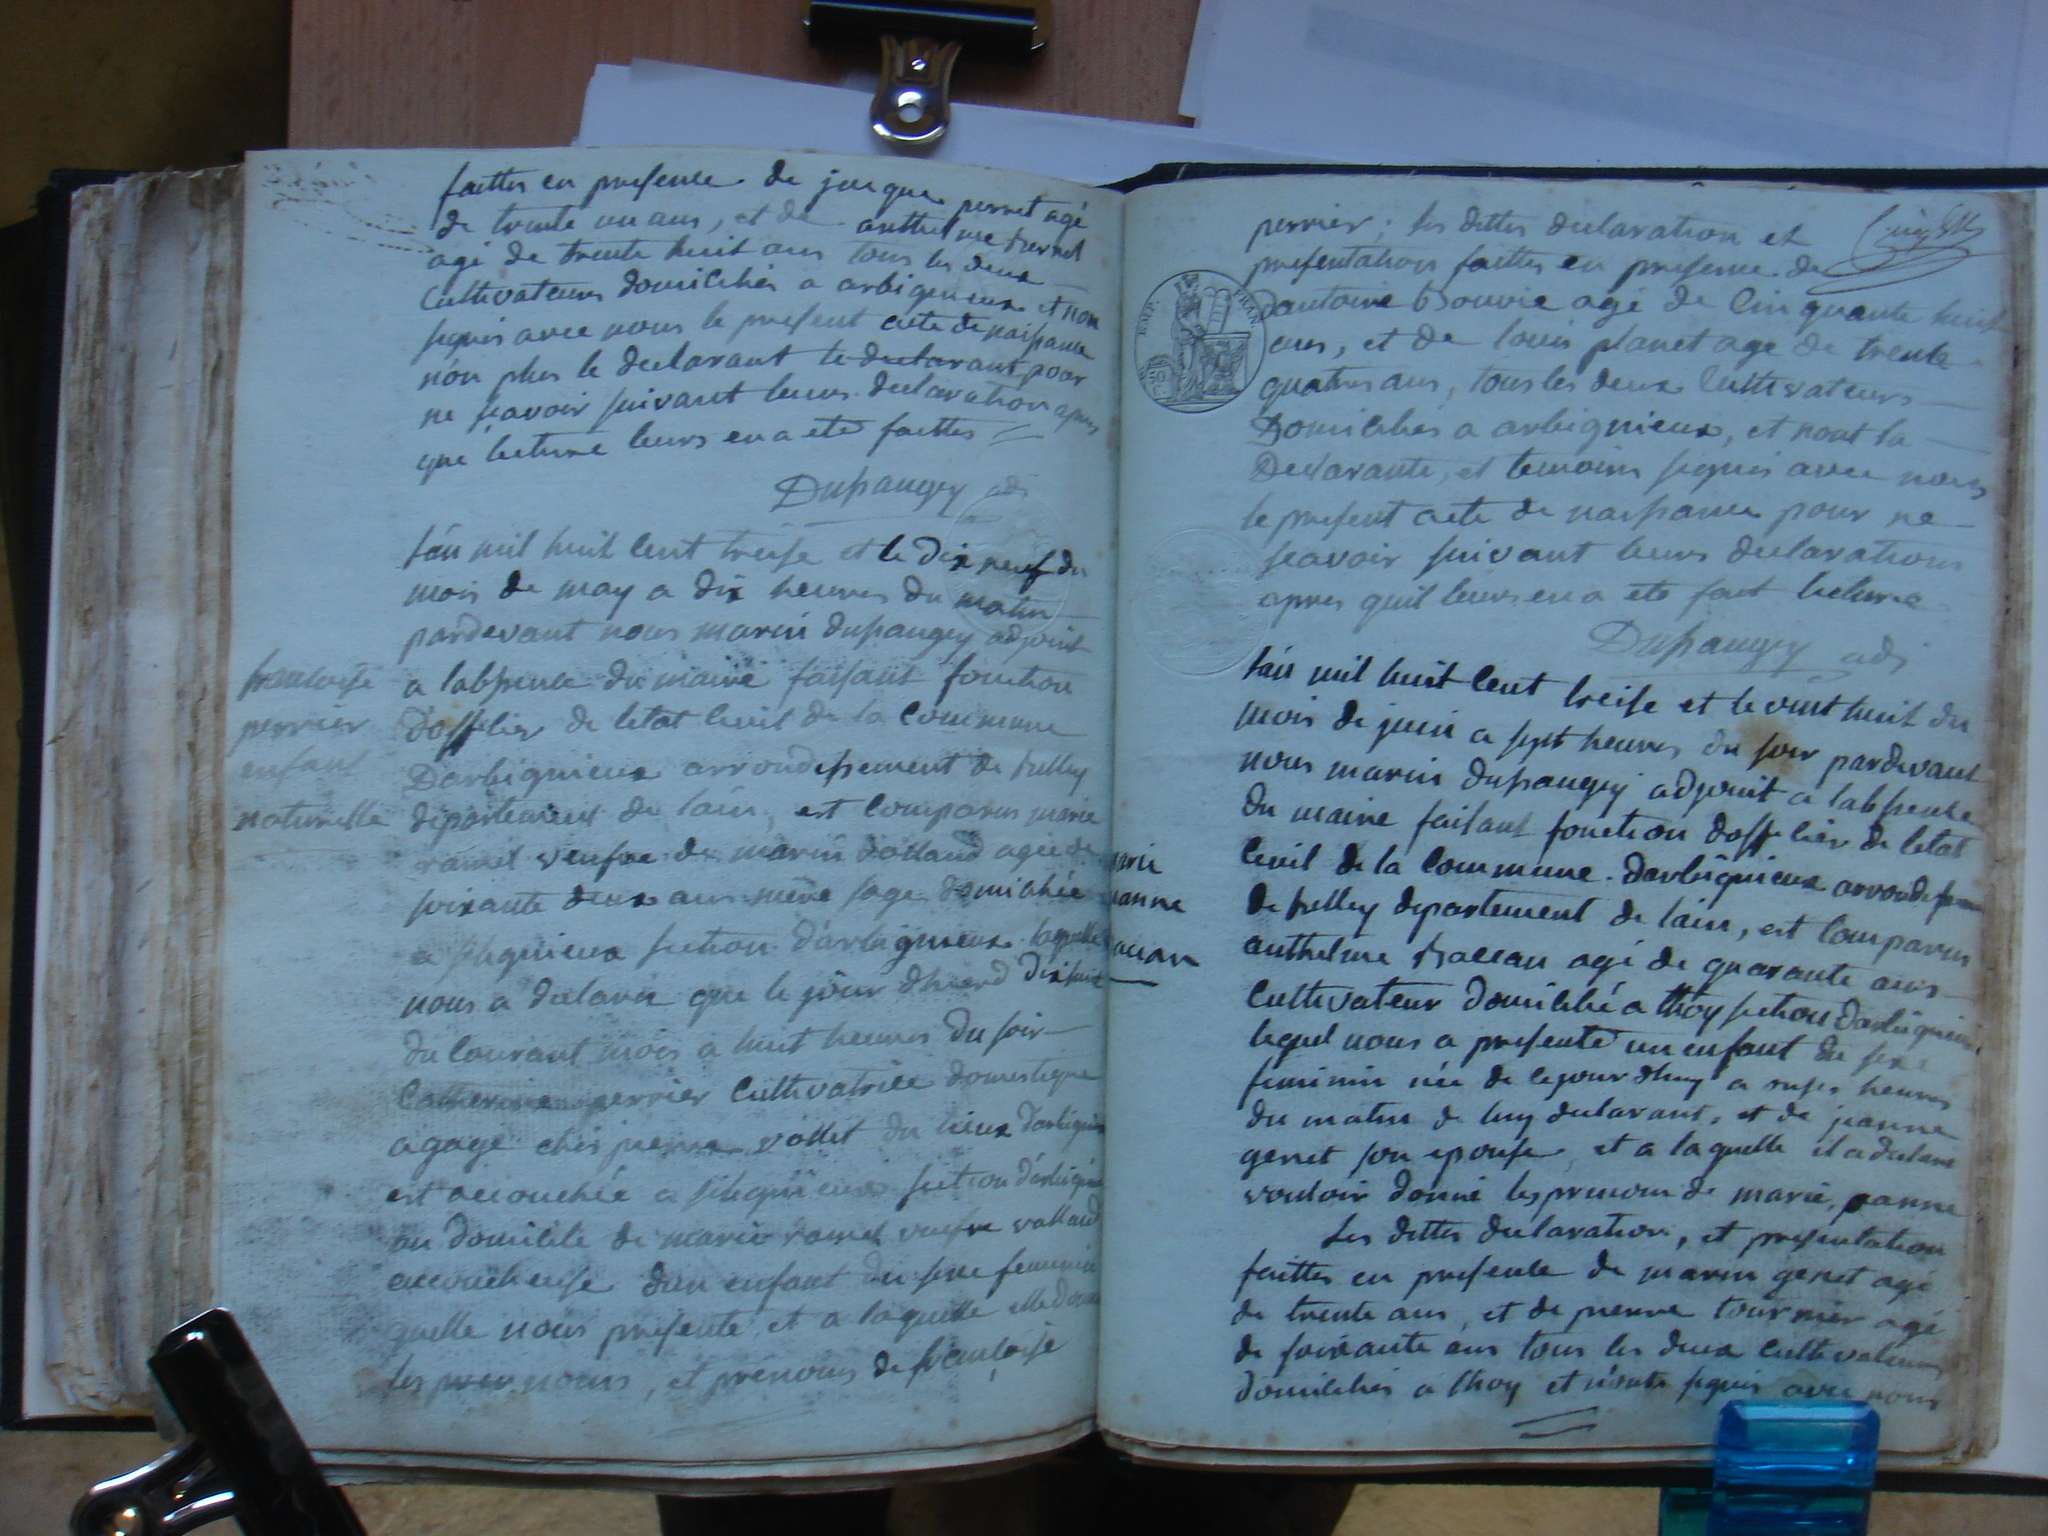 faittes en presence de jacque perret agé
de trente un ans, et de anthelme
agé de trente huit ans tous les deux
Cultivateurs domiciliés a arbignieux et non
signés avec nous le present acte de naissance
nón plus le declarant le declarant pour
ne scavoir suivant leurs declaration apres
que lecture leurs en a eté faittes
Dupraugey adj
lán mil huit cent treise et le dix neuf du
mois de may a dix heures du matin
pardevant nous marin adjoint
a labsence du maire faisant fonction
dofficier de letat Civil de la Commune
Darbignieux arrondissement de belley
departement de láin, est Comparus marie
ramel veufve de marin agée de
soixante deux ans mère sage domiciliée
a section dárbignieux laquelle
nous a declaré que le jour dhierd dixhuit
du Courant mois a huit heures du soir
Catherine perrier Cultivatrice domestique
agagé chés pierre vollet du lieux darbignieux
est accouchée a section dárbignieux
au domicile de marie ramel veufve
accoucheuse dun enfant du sexe feminin
quelle nous presente et a laquelle elle donne
les noms, et prénoms de francoise
francoise
perrier
enfant
naturelle
perrier; les dittes declaration et
presentation faittes en presence de
antoine Bouvie agé de Cinquante huit
ans, et de louis planet age de trente
quatres ans, tous les deux Cultivateurs
Domiciliés a arbignieux, et nont la
Declarante, et temoins signés avec nous
le present acte de naissance pour ne
scavoir suivant leurs declarations
apres quil leurs en a eté fait lecture
EMP. FRAN.
adj
lán mil huit Cent treise et le vint huit du
mois de juin a sept heures du soir pardevant
nous marin adjoint a labsence
du maire faisant fonction dofficier de letat
Civil de la Commune darbignieux arrondissement
de belley departement de láin, est Comparus
anthelme agé de quarante ans
Cultivateur domicilié a thoy section darbignieux
lequel nous a presenté un enfant du sexe
feminin née de cejour dhuy a heures
du matin de luy declarant, et de jeanne
genet son epouse, et a laquelle il a declaré
vouloir donné les prenoms de marie, jeanne
Les dittes declaration, et presentation
faittes en presence de marin genet agé
de trente ans, et de pierre tournier agé
de soixante ans tous les deux Cultivateurs
domiciliés a thoy et n'onts signés avec nous